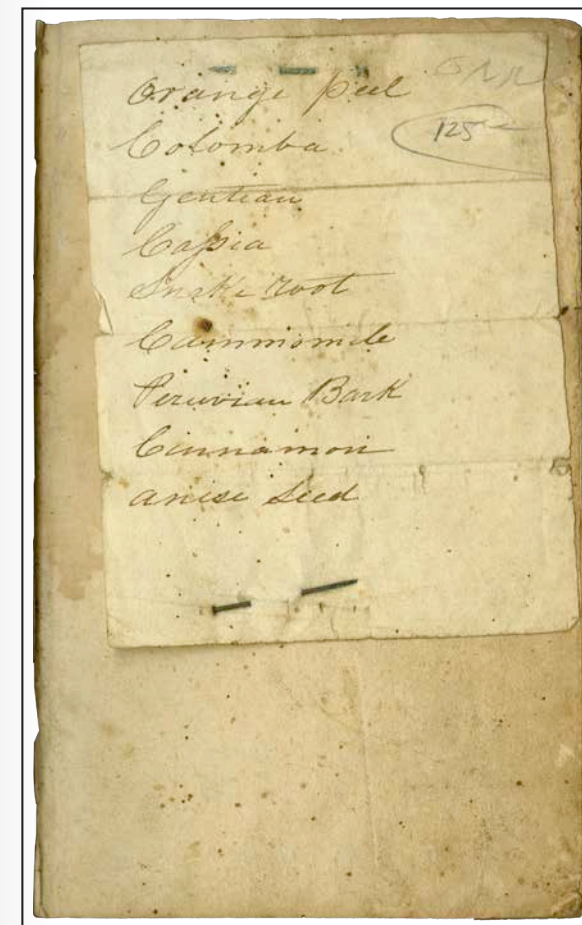 Orange peel
125
Colomba
Gentian
Caſsia
Snake root
Cammomile
Peruvian Bark
Cinnamon
anise seed